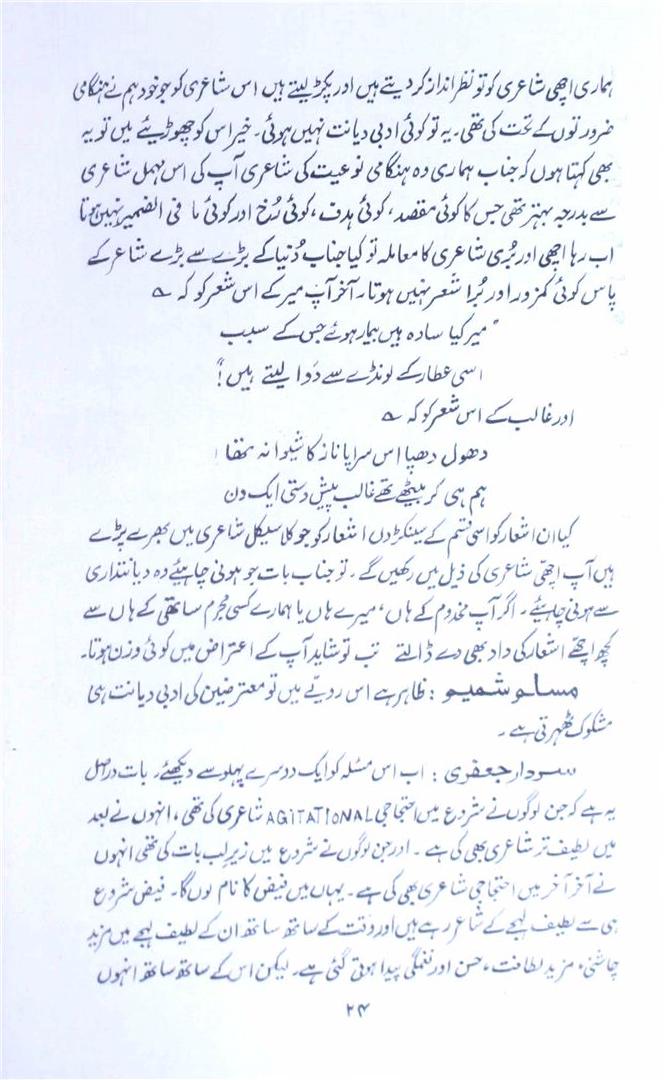 ہماری اچھی شاعری کو تو نظر انداز کر دیتے ہیں اور پکڑ لیتے ہیں اس شاعری کو جو خود ہم نے ہنگامی
ضرورتوں کے تحت کی تھی۔ یہ تو کوئی ادبی دیانت نہیں ہوئی۔ خیر اس کو چھوڑیئے میں تو یہ
بھی کہتا ہوں کہ جناب ہماری وہ ہنگامی نوعیت کی شاعری آپ کی اس مہمل شاعری
سے بدرجہ بہتر تھی جس کا کوئی مقصد، کوئی ہدف، کوئی رُخ اور کوئی ما فی الضمیر نہیں ہوتا
اب رہا اچھی اور بُری شاعری کا معاملہ تو کیا جناب دُنیا کے بڑے سے بڑے شاعر کے
پاس کوئی کمزور اور بُرا شعر نہیں ہوتا۔ آخر آپ میر کے اس شعر کو کہ ؎
"میر کیا سادہ ہیں بیمار ہوئے جس کے سبب
اسی عطار کے لونڈے سے دَوا لیتے ہیں!"
اور غالب کے اس شعر کو کہ ؎
دھول دھپا اس سراپا ناز کا شیوا نہ تھا
ہم ہی کر بیٹھے تھے غالب پیش دستی ایک دن
کیا ان اشعار کو اسی قسم کے سینکڑوں اشعار کو جو کلاسیکل شاعری میں بھرے پڑے
ہیں آپ اچھی شاعری کی ذیل میں رکھیں گے۔ تو جناب بات جو ہونی چاہیئے وہ دیانتداری
سے ہونی چاہیئے۔ اگر آپ مخدوم کے ہاں، میرے ہاں یا ہمارے کسی مجرم ساتھی کے ہاں سے
کچھ اچھے اشعار کی داد بھی دے ڈالتے تب تو شاید آپ کے اعتراض میں کوئی وزن ہوتا۔
مسلم شمیم : ظاہر ہے اس رویّے میں تو معترضین کی ادبی دیانت ہی
مشکوک ٹھہرتی ہے۔
سردار جعفری : اب اس مسئلہ کو ایک دوسرے پہلو سے دیکھئے۔ بات دراصل
یہ ہے کہ جن لوگوں نے شروع میں احتجاجی AGITATIONAL شاعری کی تھی، انہوں نے بعد
میں لطیف تر شاعری بھی کی ہے۔ اور جن لوگوں نے شروع میں زیرِ لب بات کی تھی انہوں
نے آخر آخر میں احتجاجی شاعری بھی کی ہے۔ یہاں میں فیض کا نام لوں گا۔ فیض شروع
ہی سے لطیف لہجے کے شاعر رہے ہیں اور وقت کے ساتھ ساتھ ان کے لطیف لہجے میں مزید
چاشنی، مزید لطافت، حسن اور نغمگی پیدا ہوتی گئی ہے۔ لیکن اس کے ساتھ ساتھ انہوں
۲۴